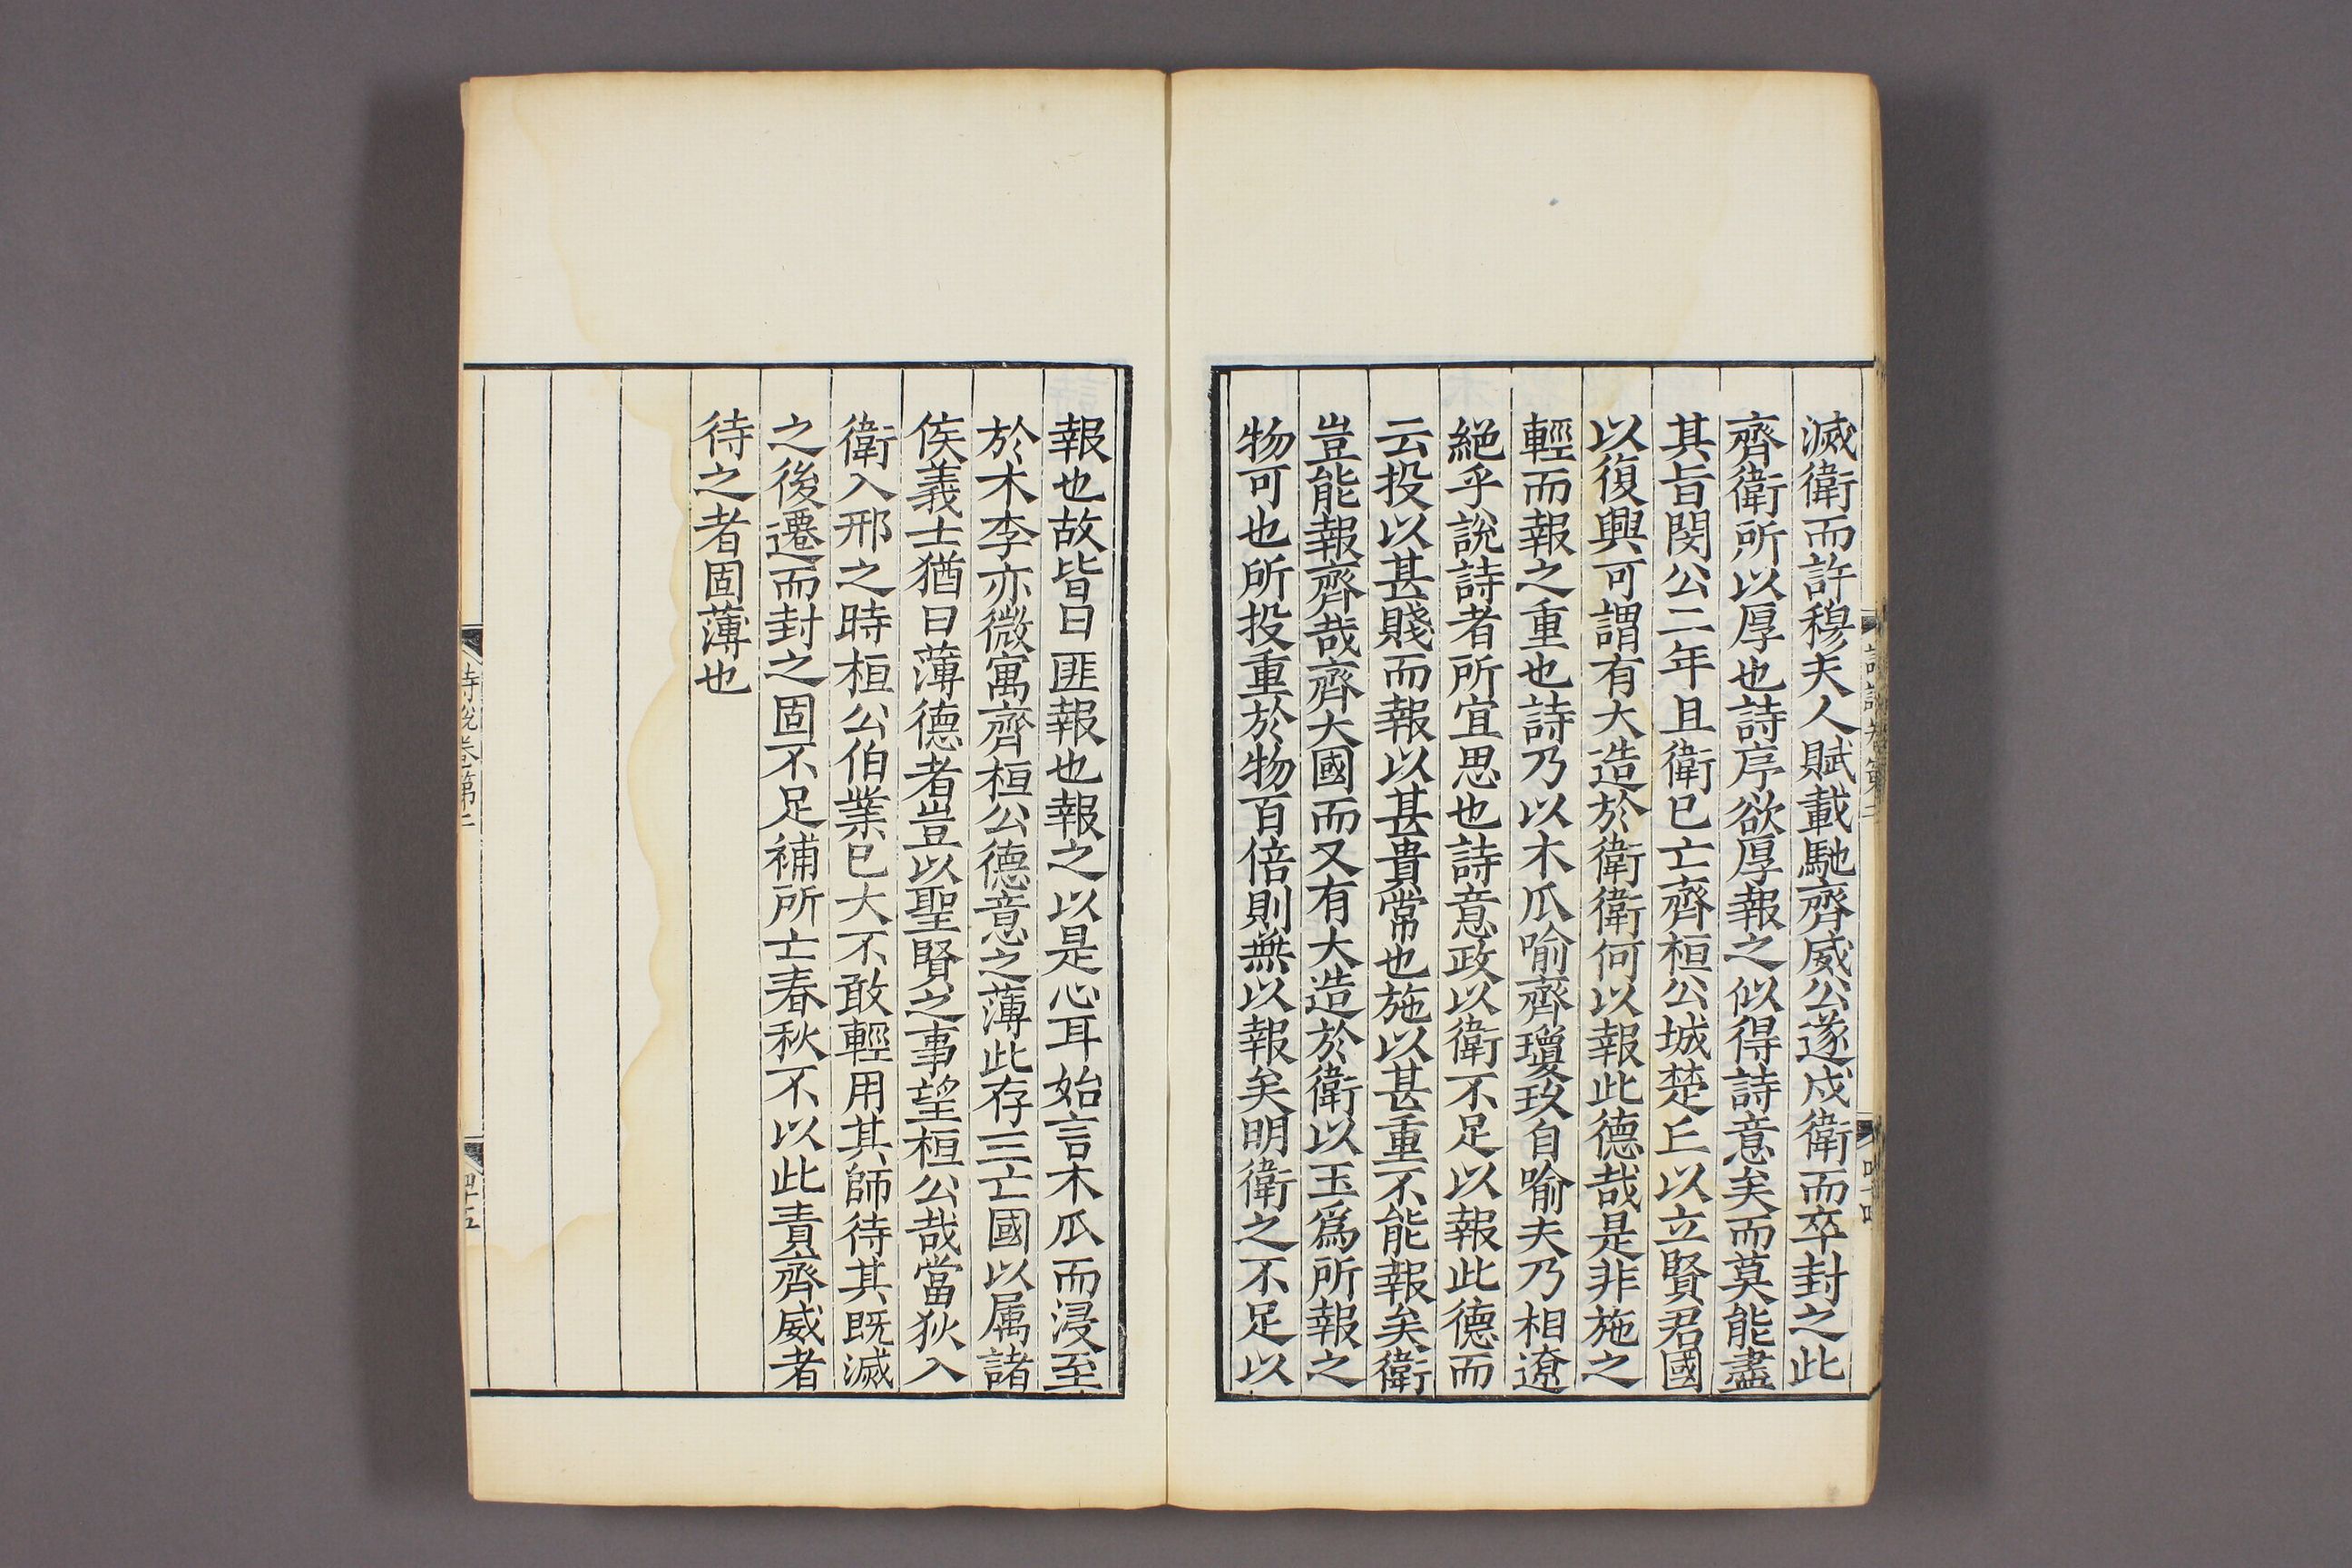 滅衛而許穆夫人賦載馳齊威公遂戍衛而卒封之此
齊衛所以厚也詩序欲厚報之似得詩意矣而莫能盡
其旨閔公二年且衛已亡齊桓公城楚丘以立賢君國
以復興可謂有大造於衛衛何以報此德哉是非施之
輕而報之重也詩乃以木瓜喻齊瓊玖自喻夫乃相遼
絕乎說詩者所宜思也詩意政以衛不足以報此德而
云投以甚賤而報以甚貴常也施以甚重不能報矣衛
豈能報齊哉齊大國而又有大造於衛以玉爲所報之
物可也所投重於物百倍則無以報矣明衛之不足以
報也故皆曰匪報也報之以是心耳始言木瓜而浸至
於木李亦微寓齊桓公德意之薄此存三亡國以属諸
侯義士猶曰薄德者豈以聖賢之事望桓公哉當狄入
衛入邢之時桓公伯業已大不敢輕用其師待其既滅
之後遷而封之固不足補所亡春秋不以此責齊威者
待之者固薄也
詩說卷第二
四十五